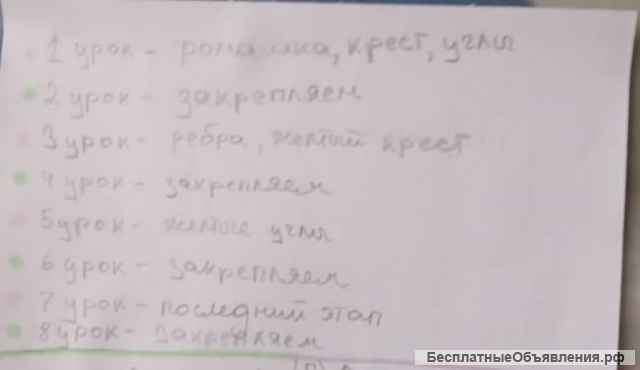 1 урок - ромашка, крест, углы
2 урок - закрепляем
3 урок - ребра, желтый крест
4 урок - закрепляем
5 урок - желтые углы
6 урок - закрепляем
7 урок - последний этап
8 урок - закрепляем
БесплатныеОбъявления.рф